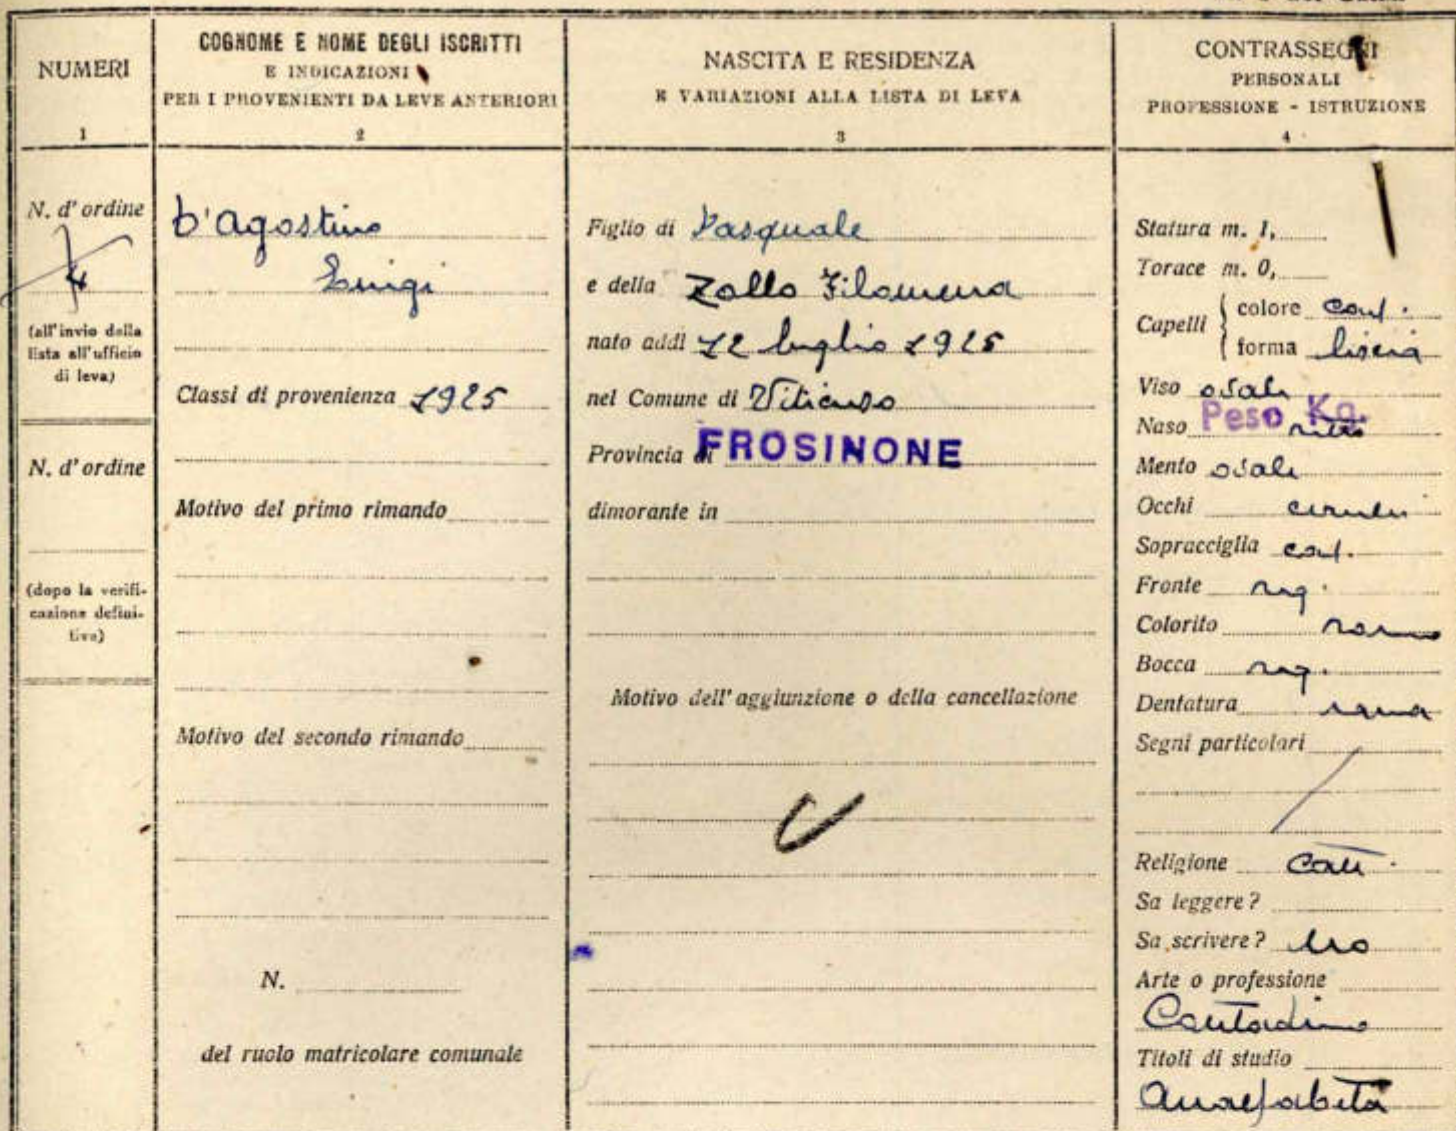 NUMERI
1
N. d'ordine
4
(all'invio della
lista all'ufficio
di leva)
N. d'ordine
(dopo la verifi-
cazione defini-
tiva)
COGNOME E NOME DEGLI ISCRITTI
E INDICAZIONI
PER I PROVENIENTI DA LEVE ANTERIORI
2
D'Agostino
Luigi
Classi di provenienza 1925
Motivo del primo rimando
Motivo del secondo rimando
N.
del ruolo matricolare comunale
NASCITA E RESIDENZA
E VARIAZIONI ALLA LISTA DI LEVA
3
Figlio di Pasquale
e della Zollo Filomena
nato addì 12 luglio 1925
nel Comune di Viticuso
Provincia di FROSINONE
dimorante in
Motivo dell'aggiunzione o della cancellazione
CONTRASSEGNI
PERSONALI
PROFESSIONE - ISTRUZIONE
4
Statura m. 1,
Torace m. 0,
Capelli { colore cast.
{ forma liscia
Viso ovale
Peso Kg.
Naso retto
Mento ovale
Occhi cerulei
Sopracciglia cast.
Fronte reg.
Colorito roseo
Bocca reg.
Dentatura sana
Segni particolari
Religione Catt.
Sa leggere?
Sa scrivere? No
Arte o professione
Contadino
Titoli di studio
Analfabeta